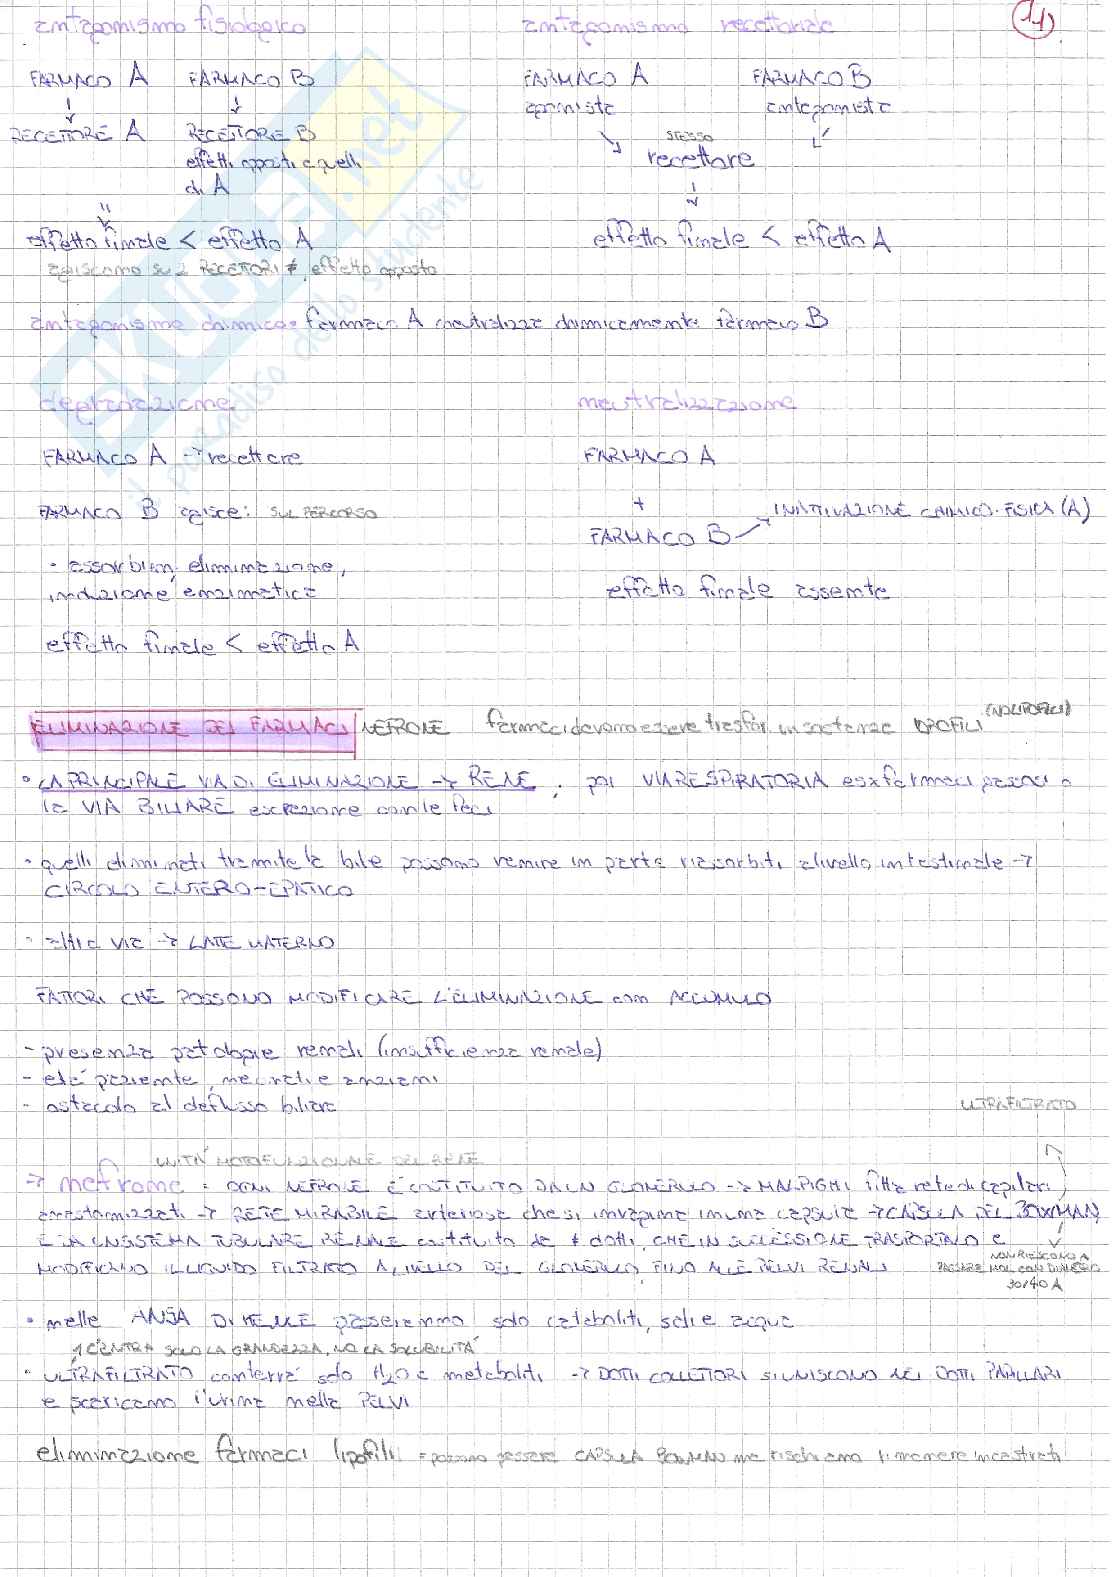 antagonismo fisiologico antagonismo recettoriale 11)
FARMACO A FARMACO B FARMACO A FARMACO B
agonista antagonista
RECETTORE A RECETTORE B STESSO
effetti opposti a quelli recettore
di A
effetto finale < effetto A effetto finale < effetto A
agiscono su 2 RECETTORI ≠, effetto opposto
antagonismo chimico: farmaco A neutralizza chimicamente farmaco B
degradazione neutralizzazione
FARMACO A → recettore FARMACO A
FARMACO B agisce: SUL PERCORSO + INATTIVAZIONE CHIMICO-FISICA (A)
FARMACO B
• assorbim, eliminazione,
induzione enzimatica effetto finale assente
effetto finale < effetto A
ELIMINAZIONE DEI FARMACI NEFRONE farmaci devono essere trasfor. in sostanze IDROFILI (NO LIPOFILI)
• LA PRINCIPALE VIA DI ELIMINAZIONE → RENE, poi VIA RESPIRATORIA es x farmaci gassosi o
la VIA BILIARE escrezione con le feci
• quelli eliminati tramite la bile possono venire in parte riassorbiti a livello intestinale →
CIRCOLO ENTERO-EPATICO
• altra via → LATTE MATERNO
FATTORI CHE POSSONO MODIFICARE L'ELIMINAZIONE con ACCUMULO
- presenza patologie renali (insufficienza renale)
- età paziente, neonati e anziani
- ostacolo al deflusso biliare ULTRAFILTRATO
UNITÀ MORFOFUNZIONALE DEL RENE
→ nefrone: OGNI NEFRONE È COSTITUITO DA UN GLOMERULO → MALPIGHI fitta rete di capillari
anastomizzati → RETE MIRABILE arteriosa che si invagina in una capsula → CAPSULA DEL BOWMAN
E DA UN SISTEMA TUBULARE RENALE costituito da ≠ dotti, CHE IN SUCCESSIONE TRASPORTANO e
MODIFICANO IL LIQUIDO FILTRATO A LIVELLO DEL GLOMERULO, FINO ALLE PELVI RENALI
NON RIESCONO A
PASSARE MOL CON DIAMETRO
30/40 A
• nelle ANSA DI HENLE passeranno solo cataboliti, sali e acqua
C'ENTRA SOLO LA GRANDEZZA, NO LA SOLUBILITÀ
• ULTRAFILTRATO conterrà solo H2O e metaboliti → DOTTI COLLETTORI SI UNISCONO NEI DOTTI PAPILLARI
e scaricano l'urina nella PELVI
eliminazione farmaci lipofili = possono passare CAPSULA BOWMAN ma rischiano rimanere incastrati
SKUOLA.net
il paradiso dello studente